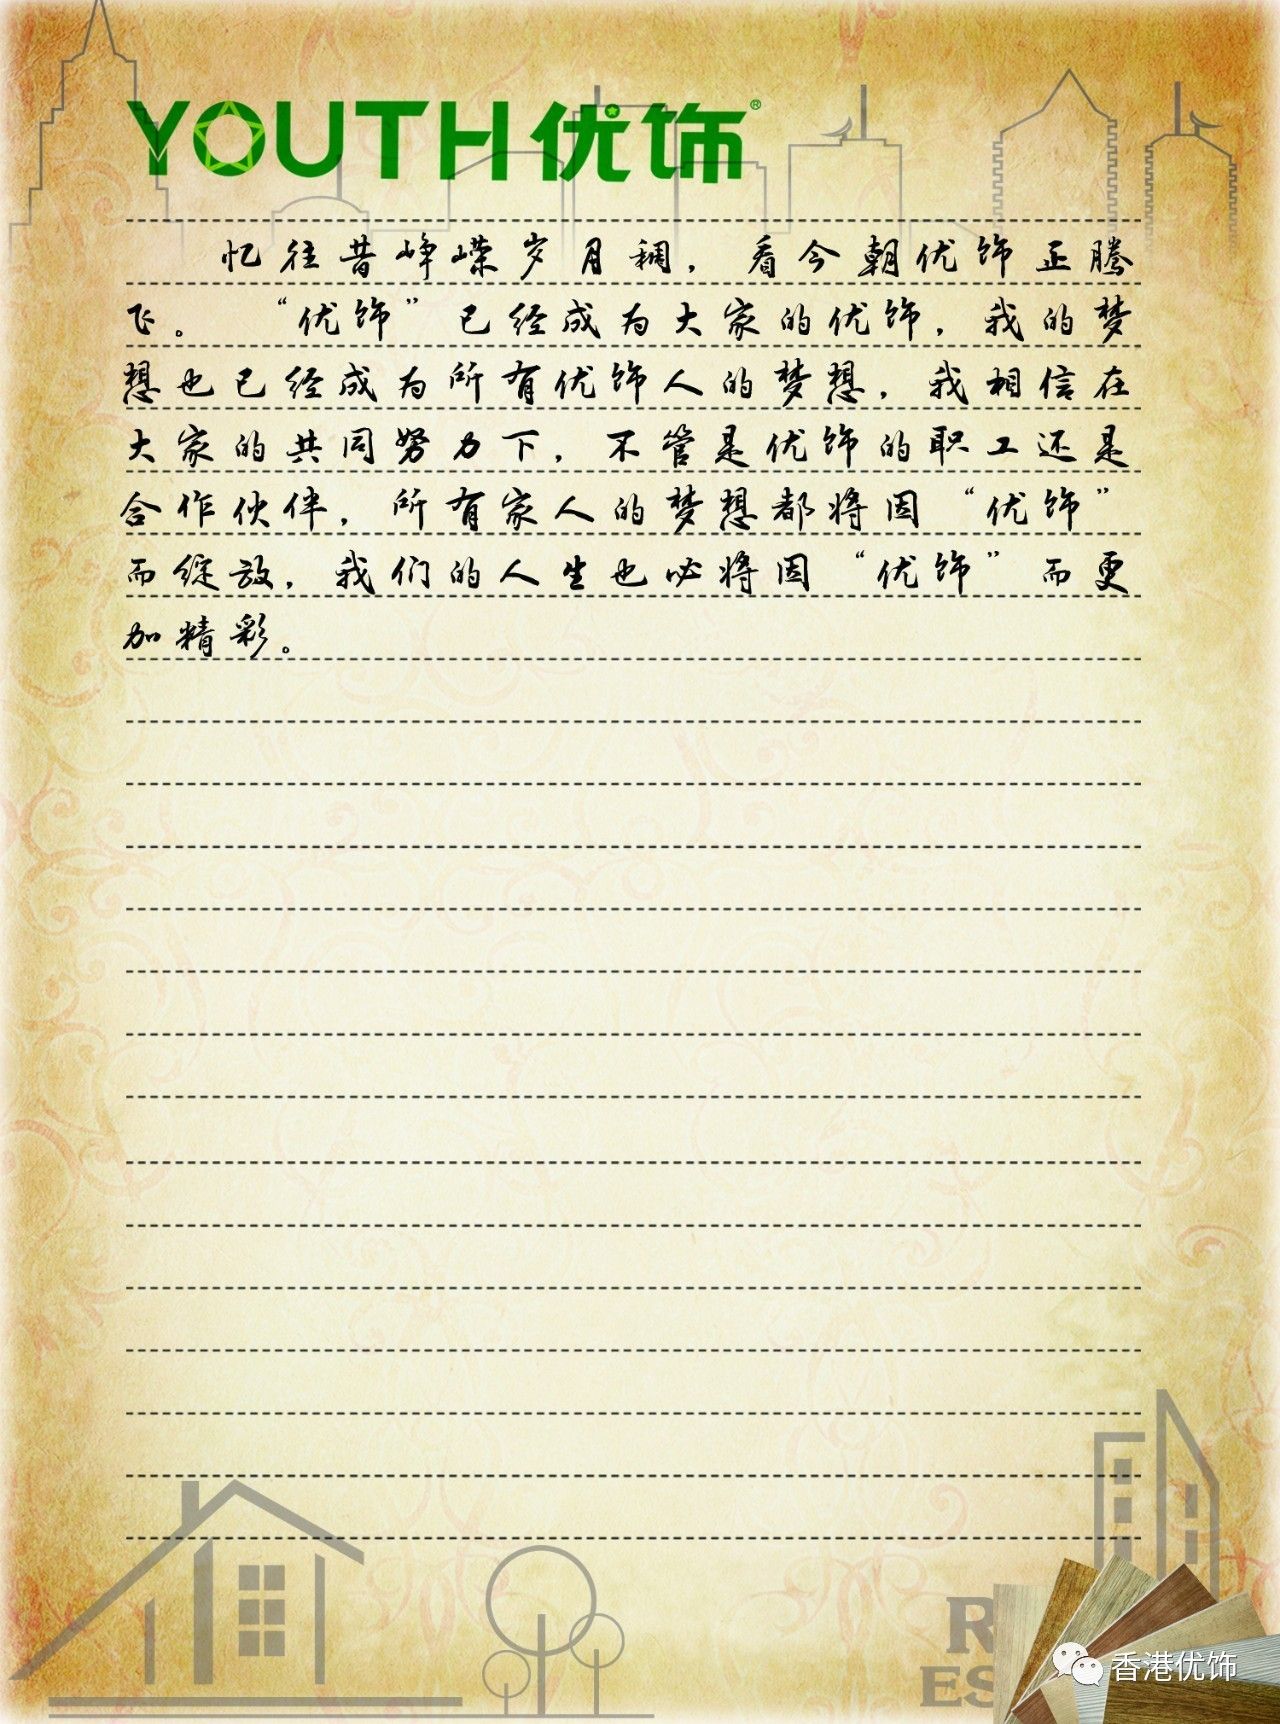 YOUTH优饰®
忆往昔峥嵘岁月稠，看今朝优饰正腾
飞。“优饰”已经成为大家的优饰，我的梦
想也已经成为所有优饰人的梦想，我相信在
大家的共同努力下，不管是优饰的职工还是
合作伙伴，所有家人的梦想都将因“优饰”
而绽放，我们的人生也必将因“优饰”而更
加精彩。
R
ES
香港优饰